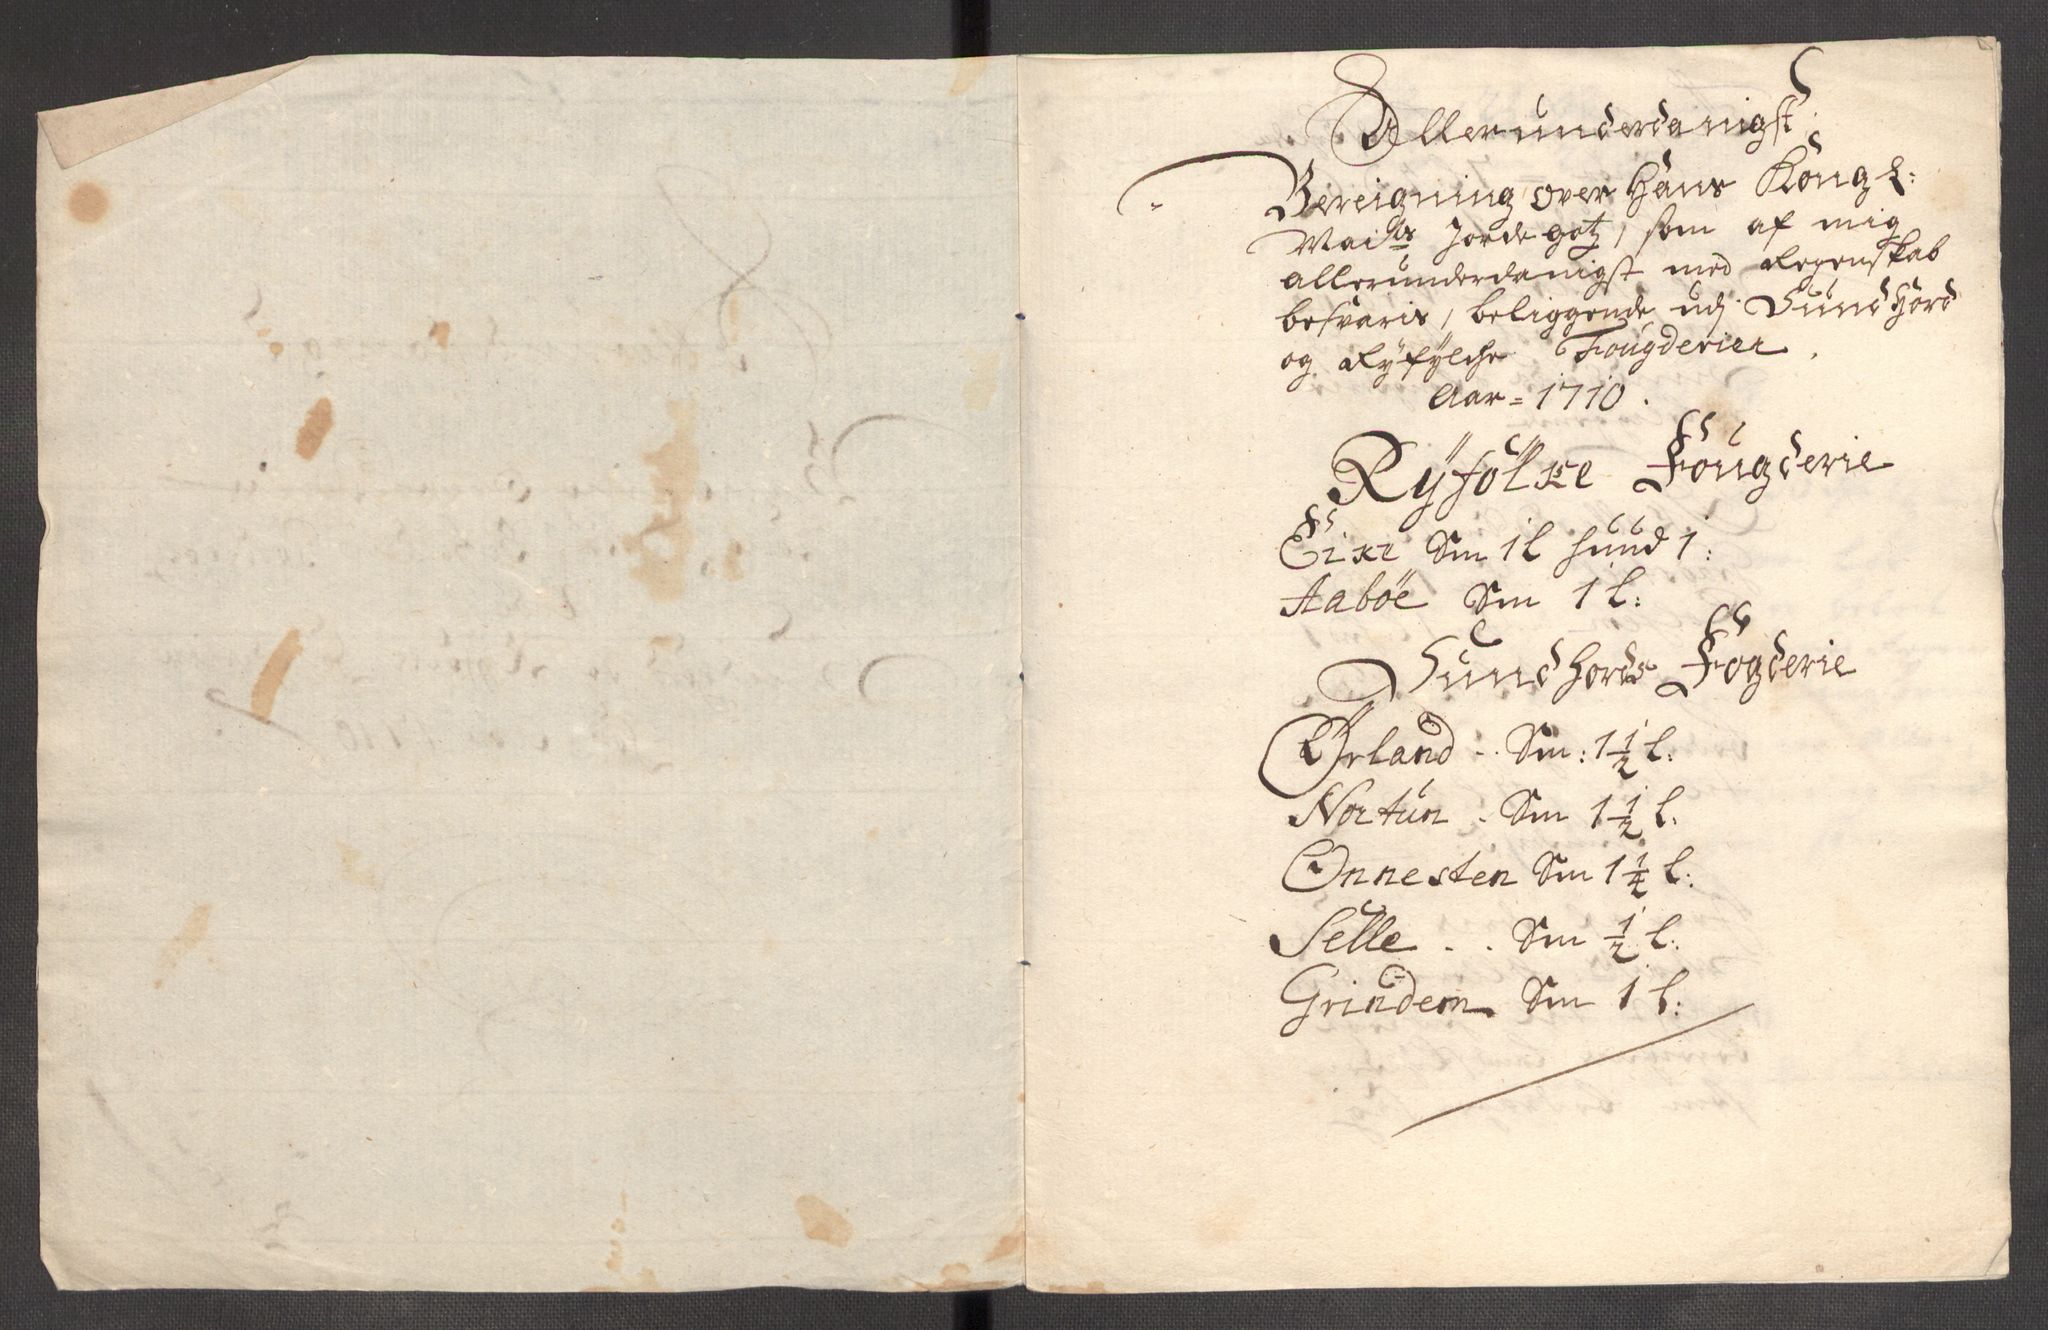 Allerunderdanigst
Bereigning over Hans Kongl:
Maits Jordegotz, som af mig
allerunderdanigst med Regenskab
besvaris, beliggende udj Sundhord
og Ryfylche Fougderier.
Aar = 1710.
Ryfölke Fougderie
Eike Sm 1 l huud 1:
Aaböe Sm 1 l:
Sundhords Fogderie
Ørland .. Sm: 1 1/2 l:
Nortun . Sm 1 1/2 l:
Onnesten Sm 1 1/4 l:
Selle . . Sm 1/2 l:
Grindem Sm 1 l: